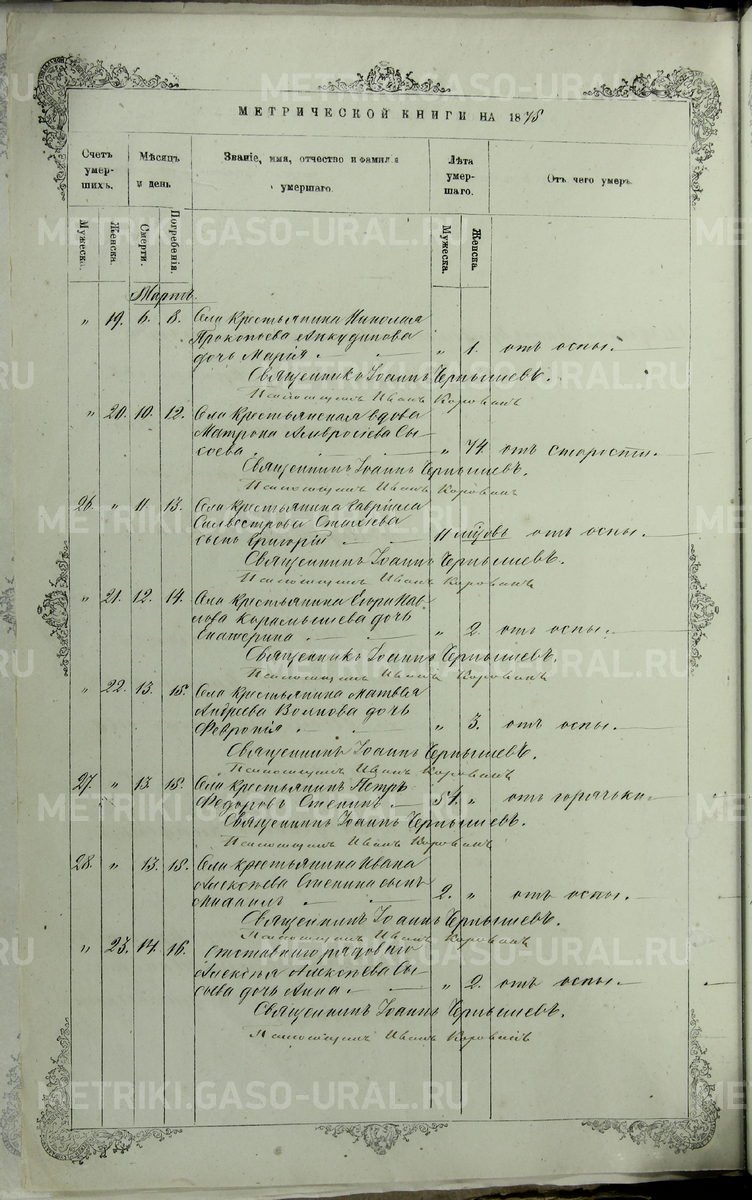 МЕТРИЧЕСКОЙ КНИГИ НА 1878
Счетъ умер-шихъ.
Мѣсяцъ и день
Званіе, имя, отчество и фамилія умершаго.
Лѣта умер-шаго.
Отъ чего умеръ.
Мужеска.
Женска.
Смерти.
Погребенія.
Мужеска.
Женска.
Мартъ.
" 19. 6. 8. Села крестьянина Николая
Прокопьева Анкудинова
дочь Марія " 1. отъ оспы.
Священникъ Іоаннъ Чернышевъ.
Иванъ
" 20. 10. 12. Села крестьянская вдова
Матрона Амвросіева Сы-
соева. " 74 отъ старости.
Священникъ Іоаннъ Чернышевъ.
Иванъ
26. " 11. 13. Села крестьянина Гавріила
Силвестрова
сынъ Григорій 11 мѣсяцовъ отъ оспы.
Священникъ Іоаннъ Чернышевъ.
Иванъ
" 21. 12. 14. Села крестьянина Егора Пав-
лова Карамышева дочь
Екатерина " 2. отъ оспы.
Священникъ Іоаннъ Чернышевъ.
Иванъ
" 22. 13. 15. Села крестьянина Матвѣя
Андреева Волкова дочь
Февронія " 3. отъ оспы.
Священникъ Іоаннъ Чернышевъ.
Иванъ
27. " 13. 15. Села крестьянинъ Петръ
Федоровъ Стенинъ. 54. " отъ горячьки.
Священникъ Іоаннъ Чернышевъ.
Иванъ
28. " 13. 15. Села крестьянина Ивана
Алексѣева Стенина сынъ
Михаилъ 2. " отъ оспы.
Священникъ Іоаннъ Чернышевъ.
Иванъ
" 23. 14. 16. Отставнаго рядоваго
Алексѣя Алексѣева Сы-
соева дочь Анна " 2. отъ оспы.
Священникъ Іоаннъ Чернышевъ.
Иванъ
METRIKI.GASO-URAL.RU